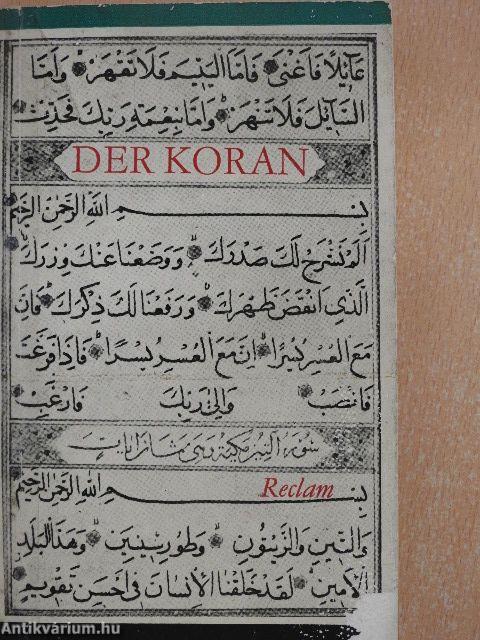 عَآئِلًا فَاَغْنٰى فَاَمَّا الْيَتِيمَ فَلَا تَقْهَرْ وَاَمَّا
السَّآئِلَ فَلَا تَنْهَرْ وَاَمَّا بِنِعْمَةِ رَبِّكَ فَحَدِّثْ
DER KORAN
بِسْمِ اللّٰهِ الرَّحْمٰنِ الرَّحِيمِ
اَلَمْ نَشْرَحْ لَكَ صَدْرَكَ وَوَضَعْنَا عَنْكَ وِزْرَكَ
الَّذِى اَنْقَضَ ظَهْرَكَ وَرَفَعْنَا لَكَ ذِكْرَكَ فَاِنَّ
مَعَ الْعُسْرِ يُسْرًا اِنَّ مَعَ الْعُسْرِ يُسْرًا فَاِذَا فَرَغْتَ
فَانْصَبْ وَاِلٰى رَبِّكَ فَارْغَبْ
سورة التين مكية وهى ثمان ايات
بِسْمِ اللّٰهِ الرَّحْمٰنِ الرَّحِيمِ
Reclam
وَالتِّينِ وَالزَّيْتُونِ وَطُورِ سِينِينَ وَهٰذَا الْبَلَدِ
الْاَمِينِ لَقَدْ خَلَقْنَا الْاِنْسَانَ فِى اَحْسَنِ تَقْوِيمٍ
Antikvárium.hu